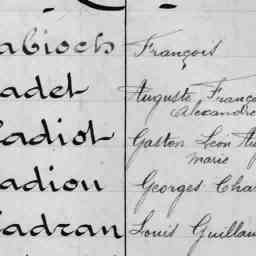 abioch François
adet Auguste Franço
Alexandre
Cadiot Gaston Leon Au
Marie
adion Georges Char
Cadran Louis Guillau